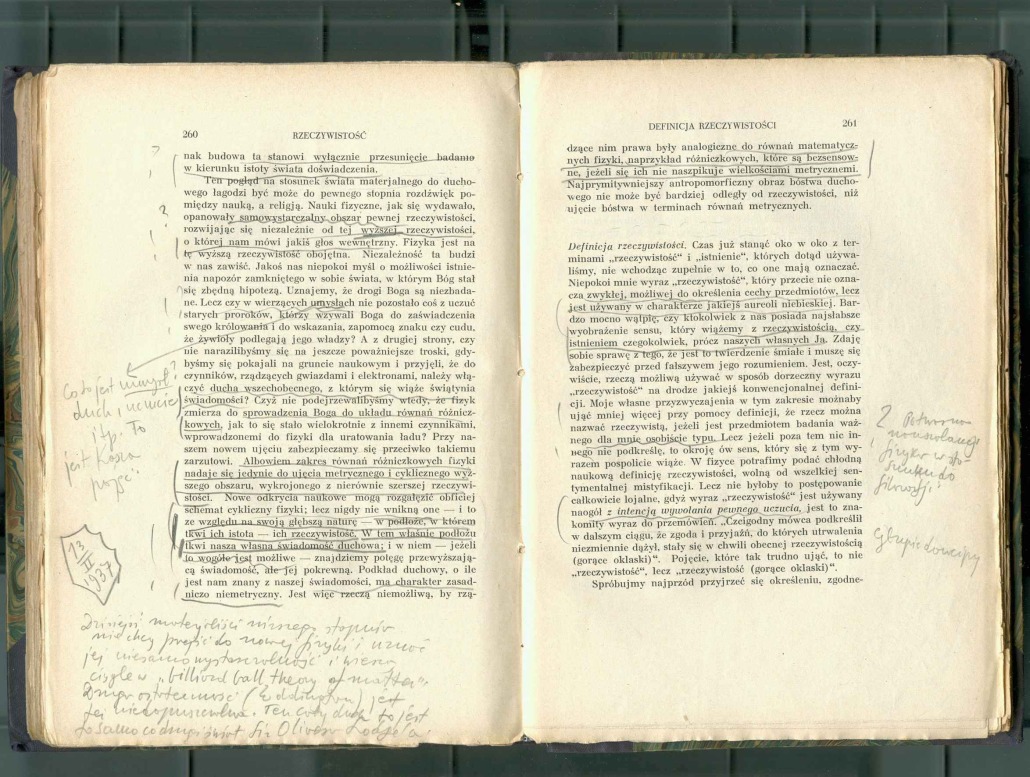 260
RZECZYWISTOŚĆ
nak budowa ta stanowi wyłącznie przesunięcie badania
w kierunku istoty świata doświadczenia.
Ten pogląd na stosunek świata materjalnego do ducho-
wego łagodzi być może do pewnego stopnia rozdźwięk po-
między nauką, a religją. Nauki fizyczne, jak się wydawało,
opanowały samowystarczalny obszar pewnej rzeczywistości,
rozwijając się niezależnie od tej wyższej rzeczywistości,
o której nam mówi jakiś głos wewnętrzny. Fizyka jest na
tę wyższą rzeczywistość obojętna. Niezależność ta budzi
w nas zawiść. Jakoś nas niepokoi myśl o możliwości istnie-
nia napozór zamkniętego w sobie świata, w którym Bóg stał
się zbędną hipotezą. Uznajemy, że drogi Boga są niezbada-
ne. Lecz czy w wierzących umysłach nie pozostało coś z uczuć
starych proroków, którzy wzywali Boga do zaświadczenia
swego królowania i do wskazania, zapomocą znaku czy cudu,
że żywioły podlegają jego władzy? A z drugiej strony, czy
nie narazilibyśmy się na jeszcze poważniejsze troski, gdy-
byśmy się pokajali na gruncie naukowym i przyjęli, że do
czynników, rządzących gwiazdami i elektronami, należy włą-
czyć ducha wszechobecnego, z którym się wiąże świątynia
świadomości? Czyż nie podejrzewalibyśmy wtedy, że fizyk
zmierza do sprowadzenia Boga do układu równań różnicz-
kowych, jak to się stało wielokrotnie z innemi czynnikami,
wprowadzonemi do fizyki dla uratowania ładu? Przy na-
szem nowem ujęciu zabezpieczamy się przeciwko takiemu
zarzutowi. Albowiem zakres równań różniczkowych fizyki
nadaje się jedynie do ujęcia metrycznego i cyklicznego wyż-
szego obszaru, wykrojonego z nierównie szerszej rzeczywi-
stości. Nowe odkrycia naukowe mogą rozgałęzić obficiej
schemat cykliczny fizyki; lecz nigdy nie wnikną one — i to
ze względu na swoją głębszą naturę — w podłoże, w którem
tkwi ich istota — ich rzeczywistość. W tem właśnie podłożu
tkwi nasza własna świadomość duchowa; i w niem — jeżeli
to wogóle jest możliwe — znajdziemy potęgę przewyższają-
cą świadomość, ale jej pokrewną. Podkład duchowy, o ile
jest nam znany z naszej świadomości, ma charakter zasad-
niczo niemetryczny. Jest więc rzeczą niemożliwą, by rzą-
Co to jest umysł
duch i uczucie
itp. To
jest
13
VI
1937
nie chcą przejść do nowej fizyki i uznać
jej niesamowystarczalność i wierzą
ciągle w „billiard ball theory of matter".
(Eddingtona) jest
to samo co drugi świat Sir Olivera Lodge'a.
DEFINICJA RZECZYWISTOŚCI
261
dzące nim prawa były analogiczne do równań matematycz-
nych fizyki, naprzykład różniczkowych, które są bezsensow-
ne, jeżeli się ich nie naszpikuje wielkościami metrycznemi.
Najprymitywniejszy antropomorficzny obraz bóstwa ducho-
wego nie może być bardziej odległy od rzeczywistości, niż
ujęcie bóstwa w terminach równań metrycznych.
Definicja rzeczywistości. Czas już stanąć oko w oko z ter-
minami „rzeczywistość“ i „istnienie“, których dotąd używa-
liśmy, nie wchodząc zupełnie w to, co one mają oznaczać.
Niepokoi mnie wyraz „rzeczywistość“, który przecie nie ozna-
cza zwykłej, możliwej do określenia cechy przedmiotów, lecz
jest używany w charakterze jakiejś aureoli niebieskiej. Bar-
dzo mocno wątpię, czy ktokolwiek z nas posiada najsłabsze
wyobrażenie sensu, który wiążemy z rzeczywistością, czy
istnieniem czegokolwiek, prócz naszych własnych Ja. Zdaję
sobie sprawę z tego, że jest to twierdzenie śmiałe i muszę się
zabezpieczyć przed fałszywem jego rozumieniem. Jest, oczy-
wiście, rzeczą możliwą używać w sposób dorzeczny wyrazu
„rzeczywistość“ na drodze jakiejś konwencjonalnej defini-
cji. Moje własne przyzwyczajenia w tym zakresie możnaby
ująć mniej więcej przy pomocy definicji, że rzecz można
nazwać rzeczywistą, jeżeli jest przedmiotem badania waż-
nego dla mnie osobiście typu. Lecz jeżeli poza tem nic in-
nego nie podkreślę, to okroję ów sens, który się z tym wy-
razem pospolicie wiąże. W fizyce potrafimy podać chłodną
naukową definicję rzeczywistości, wolną od wszelkiej sen-
tymentalnej mistyfikacji. Lecz nie byłoby to postępowanie
całkowicie lojalne, gdyż wyraz „rzeczywistość“ jest używany
naogół z intencją wywołania pewnego uczucia, jest to zna-
komity wyraz do przemówień. „Czcigodny mówca podkreślił
w dalszym ciągu, że zgoda i przyjaźń, do których utrwalenia
niezmiennie dążył, stały się w chwili obecnej rzeczywistością
(gorące oklaski)“. Pojęcie, które tak trudno ująć, to nie
„rzeczywistość“, lecz „rzeczywistość (gorące oklaski)“.
Spróbujmy najprzód przyjrzeć się określeniu, zgodne-
fizyka w sto-
sunku do
filozofji!